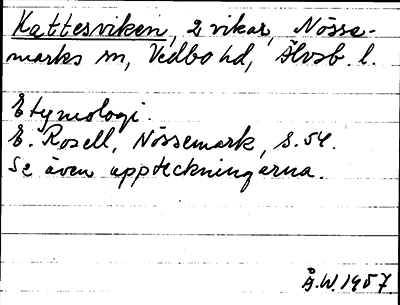 Kattesviken, 2 vikar, Nösse-
marks sn, Vedbo hd, Älvsb. l.
Etymologi.
E. Rosell, Nössemark, S. 54.
Se även uppteckningarna.
Å.W. 1957.